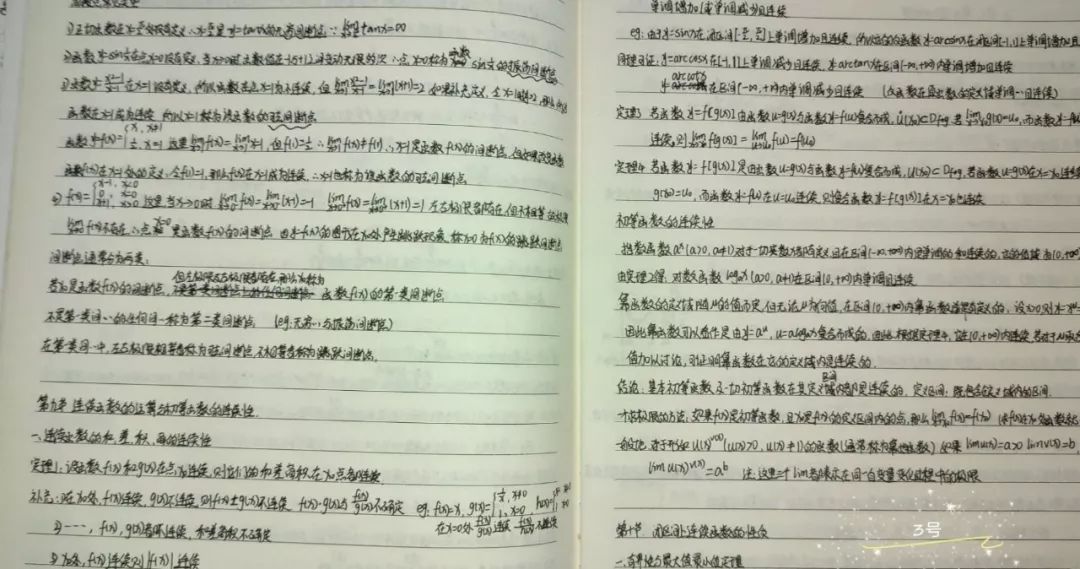 1)正切函数在x=π/2处没有定义 ∴x=π/2是y=tanx的无穷间断点 ∵lim tanx=∞
2)函数y=sin 1/x在点x=0没有定义,当x→0时函数值在-1与+1之间变动无限多次 ∴点x=0称为函数sin 1/x的振荡间断点
3)函数y= 在x=1没有定义,所以函数在点x=1为不连续,但 lim = lim(x+1)=2 如果补充定义,令x=1时y=2,
函数在x=1成为连续 所以x=1称为该函数的可去间断点
函数y=f(x)= 这里lim f(x)=lim x=1,但f(1)=1/2 ∴lim f(x)≠f(1) ∴x=1是函数f(x)的间断点,但如果改变函数
函数f(x)在x=1处的定义,令f(1)=1,那么f(x)在x=1成为连续 ∴x=1也称为该函数的可去间断点
5) f(x)={x-1, x<0 0, x=0 x+1, x>0 这里当x→0时 lim f(x)=lim(x-1)=-1 lim f(x)=lim(x+1)=1 左右极限都存在,但不相等
lim f(x)不存在 ∴点x=0是函数f(x)的间断点 由y=f(x)的图形在x=0处产生跳跃现象,称x=0为f(x)的跳跃间断点
间断点通常分为两类:
若x₀是函数f(x)的间断点,但左极限与右极限都存在,那么x₀称为函数f(x)的第一类间断点
不是第一类间…的任何间…称为第二类间断点 (eg:无穷…与振荡间断点)
在第一类间…中,左右极限相等者称为可去间断点,不相等者称为跳跃间断点
第九节 连续函数的运算与初等函数的连续性
一、连续函数的和、差、积、商的连续性
定理1:设函数f(x)和g(x)在点x₀连续,则它们的和差商积在x₀点都连续
补充:1)在x₀处,f(x)连续,g(x)不连续,则f(x)±g(x)不连续 f(x)·g(x)与f(x)/g(x)不确定 eg. f(x)=x, g(x)={ x≠0 1, x=0
在x=0处 连续 不连续
2)…,f(x),g(x)都不连续,和差商积不确定
3)x₀处,f(x)连续则|f(x)|连续
单调增加(或单调减少)且连续
eg:由于y=sinx在闭区间[-π/2,π/2]上单调增加且连续,所以它的反函数y=arcsinx在闭区间[-1,1]上单调增加且
同理可证:y=arccosx在[-1,1]上单调减少且连续,y=arctanx在区间(-∞,+∞)内单调增加且连续
y=arccotx在区间(-∞,+∞)内单调减少且连续
定理3 若函数y=f[g(x)]由函数u=g(x)与函数y=f(u)复合而成,U(x₀)⊂Df∘g,若lim g(x)=u₀,而函数y=f(u)
连续,则lim f[g(x)]=lim f(u)=f(u₀)
定理4 若函数y=f[g(x)]是由函数u=g(x)与函数y=f(u)复合而成,U(x₀)⊂Df∘g,若函数u=g(x)在x=x₀连续
g(x₀)=u₀,而函数y=f(u)在u=u₀连续,则复合函数y=f[g(x)]在x=x₀也连续
初等函数的连续性
指数函数aˣ(a>0,a≠1)对于一切实数x都有定义且在区间(-∞,+∞)内是单调的和连续的,它的值域为(0,+∞)
由定理2得:对数函数logₐx(a>0,a≠1)在区间(0,+∞)内单调且连续
幂函数的定义域随μ的值而变,但无论μ为何值,在区间(0,+∞)内幂函数总是有定义的,设x>0则y=
因此幂函数可以看作是由y=aᵘ,u= 复合而成的,因此,根据定理4,它在(0,+∞)内连续,若对于μ取
值加以讨论,可证明幂函数在它的定义域内是连续的.
结论:基本初等函数及一切初等函数在其定义区间内都是连续的,定义区间:即包含在定义域内的区间
求极限的方法:如果f(x)是初等函数,且x₀是f(x)的定义区间内的点,那么lim f(x)=f(x₀)
一般地,对于形如u(x)^v(x) (u(x)>0,u(x)≢1)的函数(通常称为幂指函数)如果lim u(x)=a>0 lim v(x)=b
lim u(x)^v(x)=aᵇ 注:这里三个lim都表示在同一自变量变化过程中的极限
第十节 闭区间上连续函数的性质
一、有界性与最大值最小值定理
3号